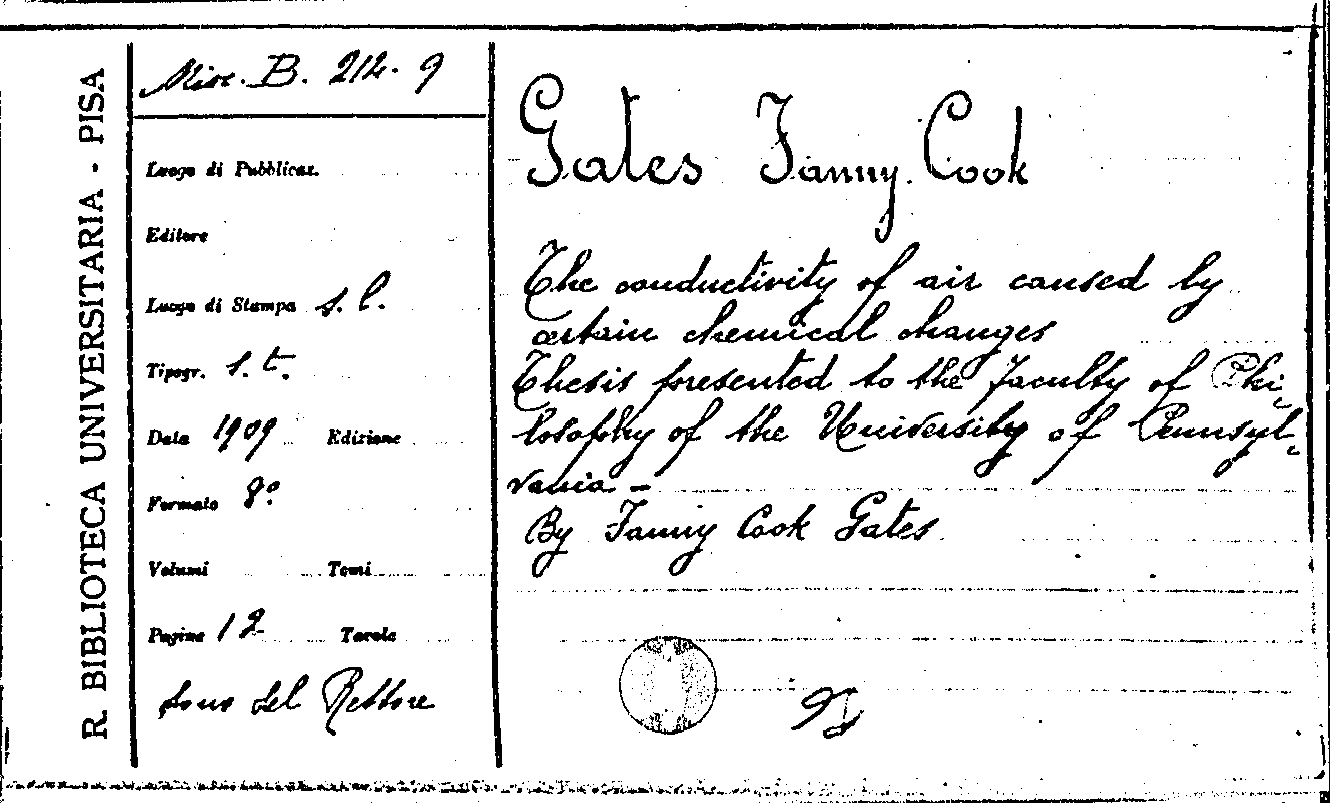 R. BIBLIOTECA UNIVERSITARIA - PISA
Misc. B. 212. 9
Luogo di Pubblicaz.
Editore
Luogo di Stampa s. l.
Tipogr. s. t.
Data 1909 Edizione
Formato 8º
Volumi Tomi
Pagine 12 Tavole
dono del Rettore
Gates Fanny Cook
The conductivity of air caused by
certain chemical changes
Thesis presented to the Faculty of Phi-
losophy of the University of Pennsyl-
vania -
By Fanny Cook Gates